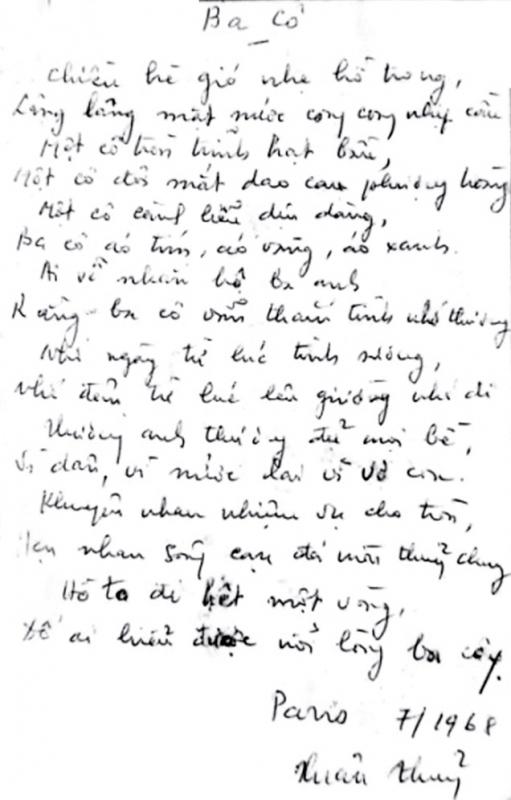 Ba Cô
Chiều hè gió nhẹ hồ trong,
Lăng lăng mặt nước cong cong nhịp cầu
Một cô trên trính hạt bầu,
Một cô đôi mắt dao cau phượng hồng
Một cô cành liễu dịu dàng,
Ba cô áo tím, áo vàng, áo xanh.
Ai về nhắn hộ ba anh
Rằng ba cô vẫn thắm tình nhớ thương
Nhớ ngày từ lúc tinh sương,
nhớ đêm từ lúc lên giường nhớ đi
Thương anh thương đủ mọi bề,
Vì dân, vì nước lại vì vợ con.
Khuyên nhau nhiệm vụ cho tròn,
Hẹn nhau sông cạn đá mòn thuỷ chung
Hồ ta đi hết một vòng,
Đố ai hiểu được nỗi lòng ba cây.
Paris 7/1968
Xuân Thuỷ